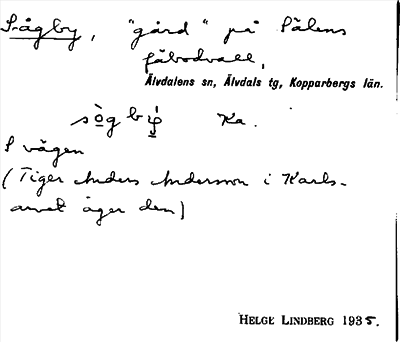 Sågby, "gård" på Pålens
fäbodvall,
Älvdalens sn, Älvdals tg, Kopparbergs län.
Ka.
S vägen
(Tiger Anders Andersson i Karls-
arvet äger den)
HELGE LINDBERG 1935.